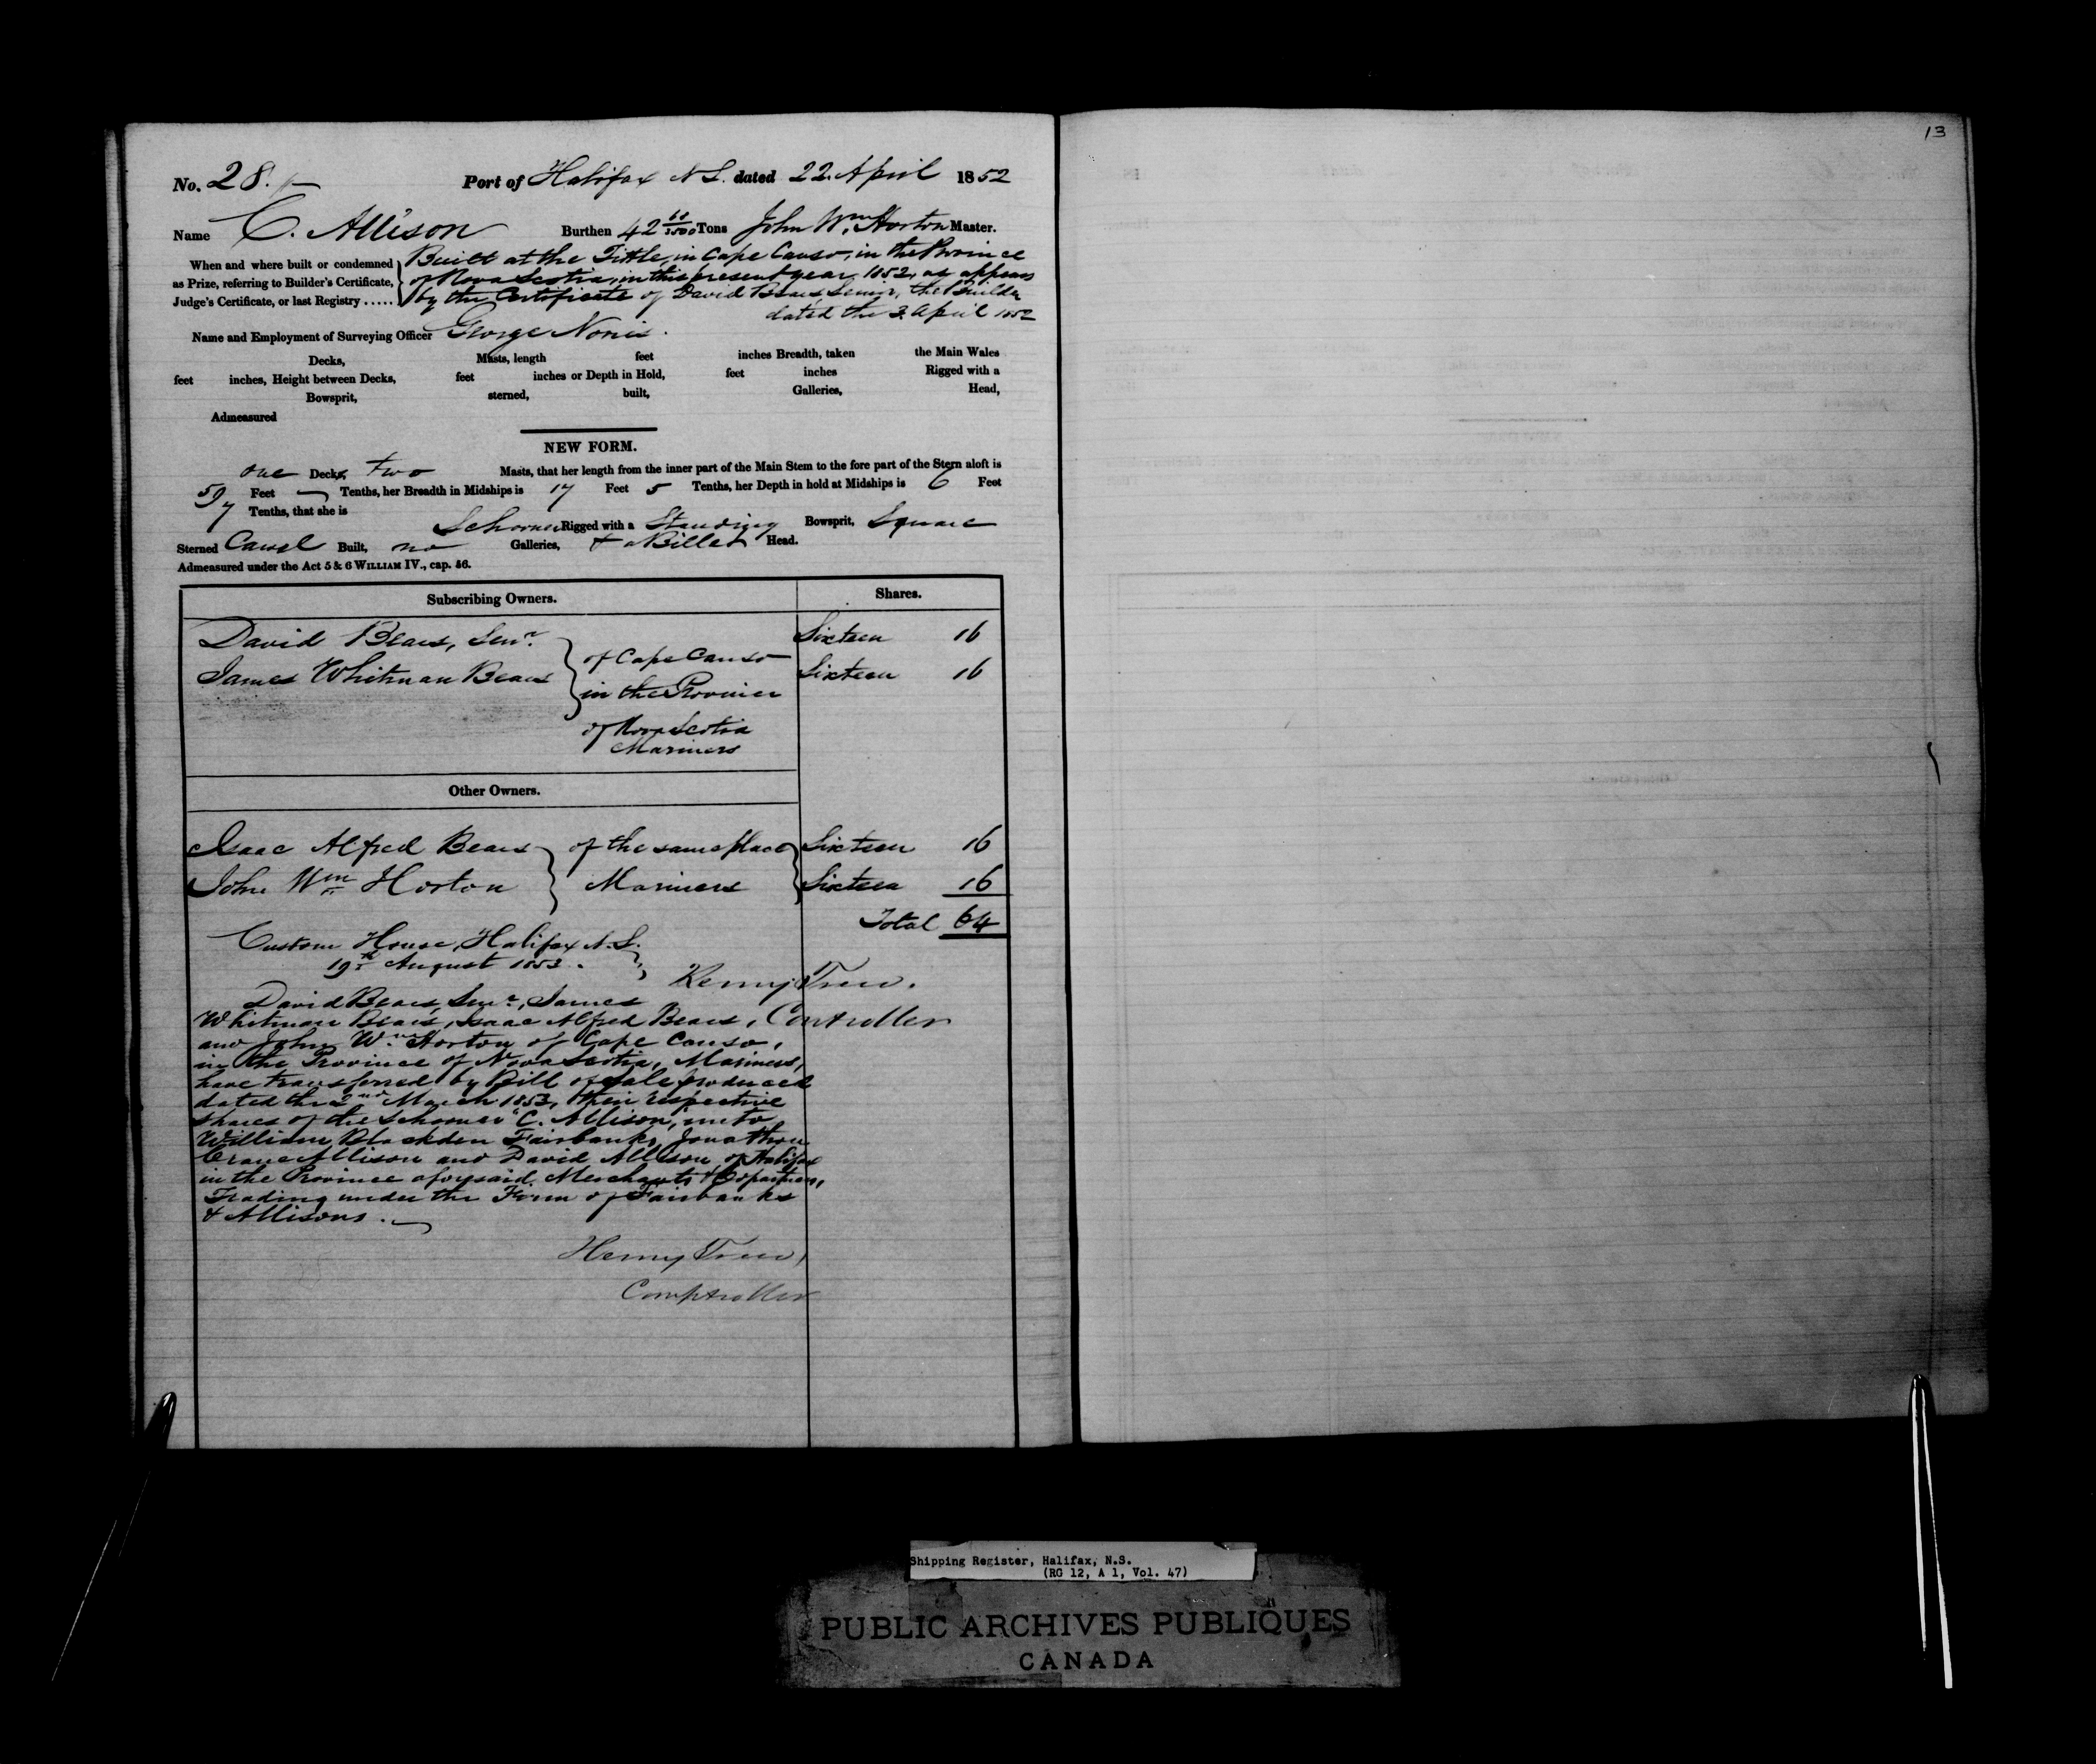 13
No. 28.
Port of Halifax N S. dated 22. April 1852
Name C. Allison Burthen 42 68/3500 Tons John Wm. Horton Master.
When and where built or condemned as Prize, referring to Builder's Certificate, Judge's Certificate, or last Registry .....
Built at the Tittle, in Cape Canso, in the Province
of Nova Scotia, in this present year, 1852, as appears
by the Certificate of David Bears Senior, the Builder
dated the 3. April 1852
Name and Employment of Surveying Officer George
Decks, Masts, length feet inches Breadth, taken the Main Wales
feet inches, Height between Decks, feet inches or Depth in Hold, feet inches Rigged with a
Bowsprit, sterned, built, Galleries, Head,
Admeasured
NEW FORM.
one Decks, two Masts, that her length from the inner part of the Main Stem to the fore part of the Stern aloft is
59 Feet Tenths, her Breadth in Midships is 17 Feet 5 Tenths, her Depth in hold at Midships is 6 Feet
7 Tenths, that she is
Schooner Rigged with a Standing Bowsprit, Square
Sterned Carvel Built, no Galleries, & a Billet Head.
Admeasured under the Act 5 & 6 WILLIAM IV., cap. 56.
Subscribing Owners. Shares.
David Bears, Senr. Sixteen 16
James Whitman Bears Sixteen 16
of Cape Canso
in the Province
of Nova Scotia
Mariners
Other Owners.
Isaac Alfred Bears of the same place Sixteen 16
John Wm Horton Mariners Sixteen 16
Total 64
Custom House, Halifax N.S.
19th August 1853.
Henry Trew.
Controller
David Bears, Senr., James
Whitman Bears, Isaac Alfred Bears,
and John Wm. Horton of Cape Canso,
in the Province of Nova Scotia, Mariners,
have transferred by Bill of Sale produced
dated the 2nd March 1853, their respective
shares of the Schooner "C. Allison," unto
William Blackden Fairbanks, Jonathan
Crane Allison and David Allison of Halifax
in the Province aforesaid, Merchants & Copartners,
Trading under the Firm of Fairbanks
& Allisons.
Henry Trew,
Comptroller
Shipping Register, Halifax, N.S.
(RG 12, A 1, Vol. 47)
PUBLIC ARCHIVES PUBLIQUES
CANADA